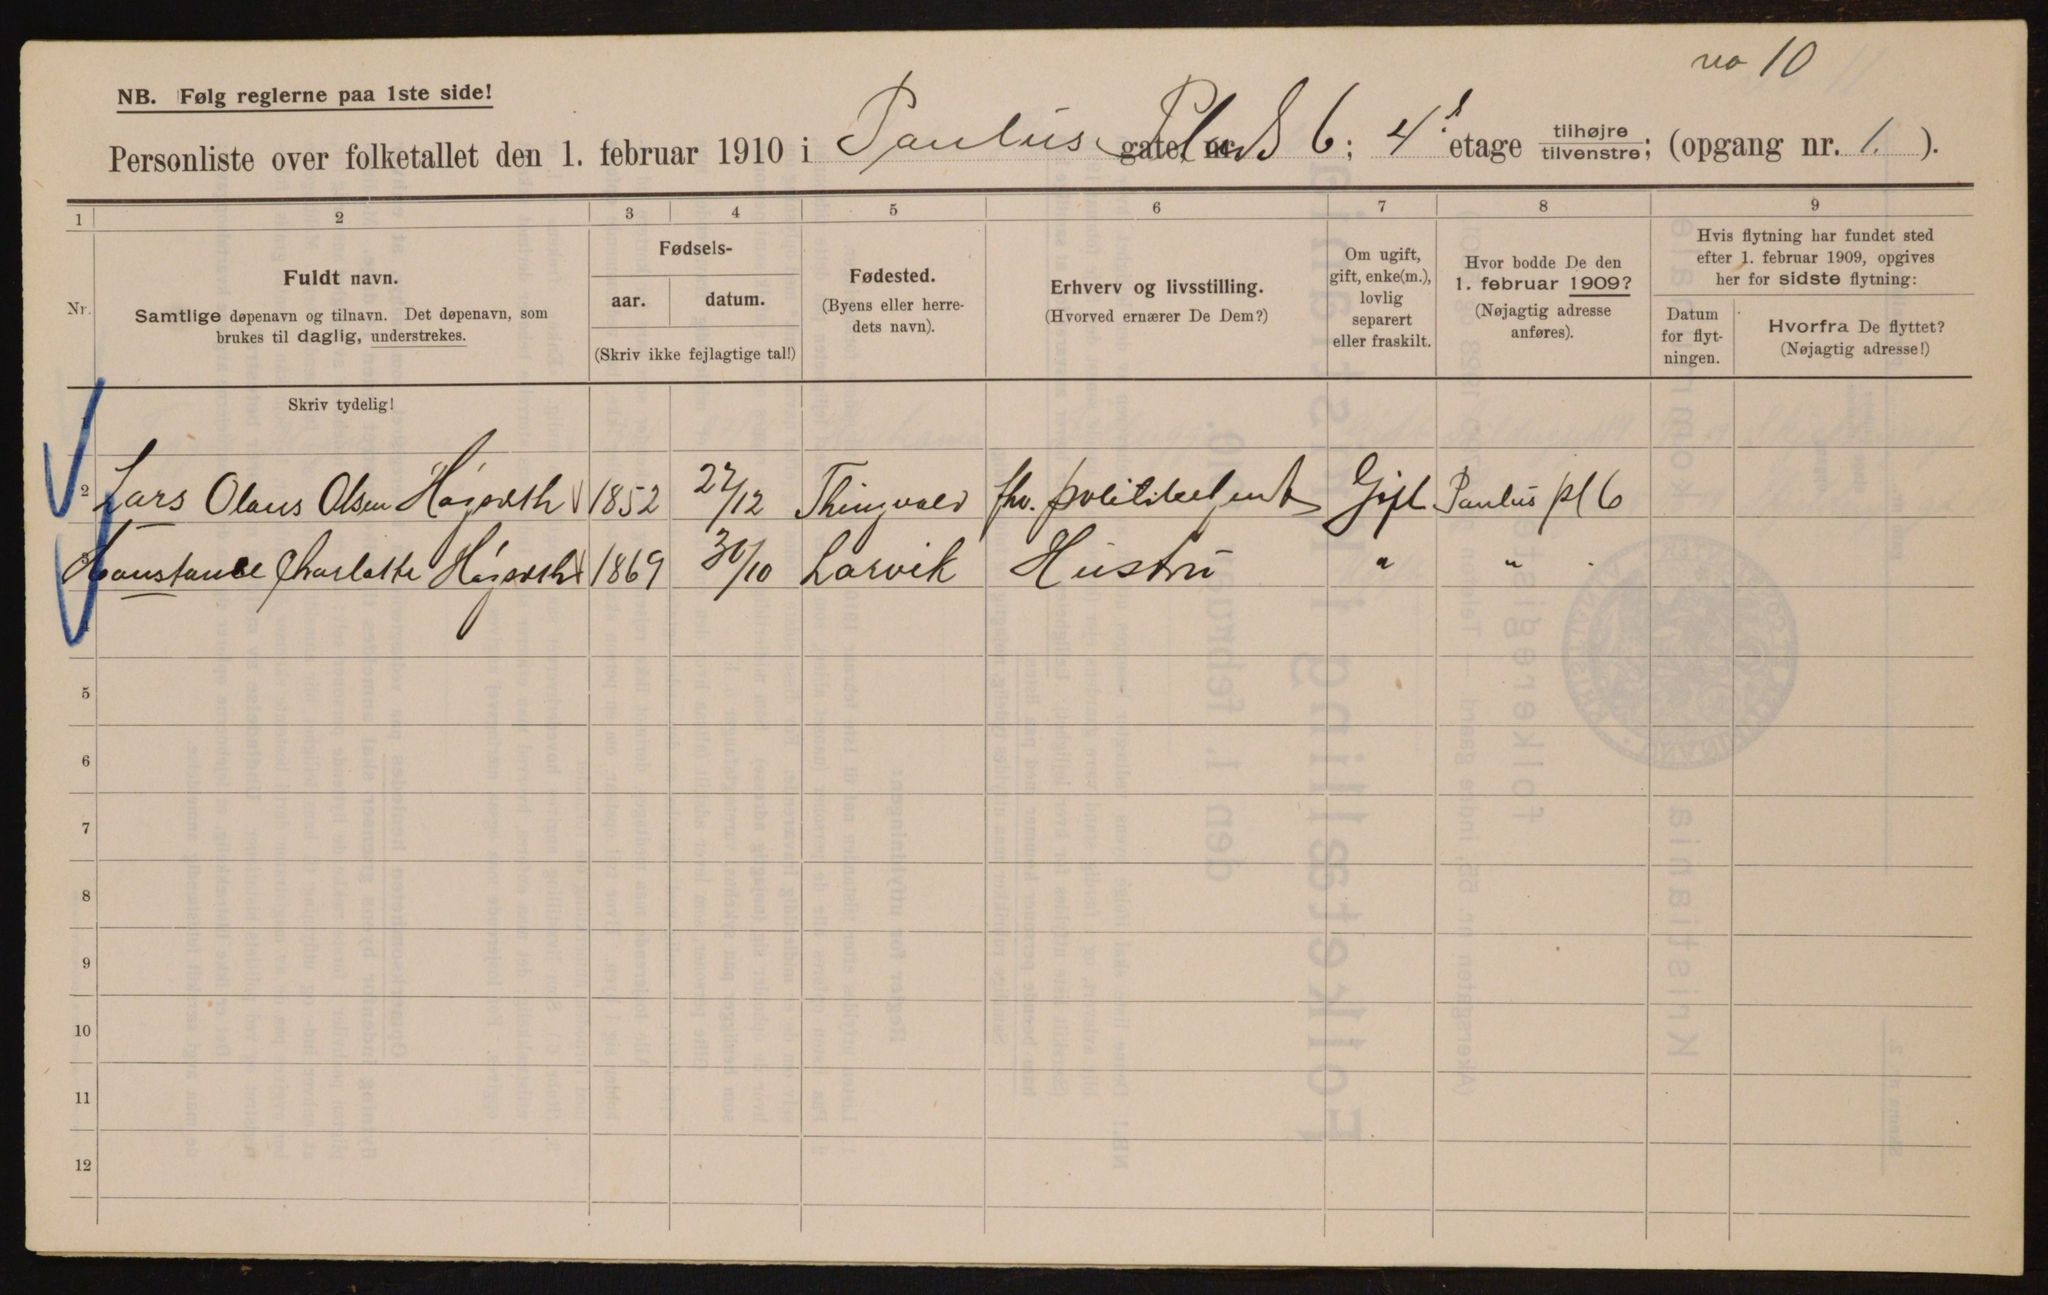 no 10
NB. Følg reglerne paa 1ste side!
Personliste over folketallet den 1. februar 1910 i Paulus Plads 6; 4 etage tilhøjre tilvenstre; (opgang nr. 1.).
1 2 3 4 5 6 7 8 9
Nr.
Fuldt navn.
Samtlige døpenavn og tilnavn. Det døpenavn, som
brukes til daglig, understrekes.
Fødsels-
aar. datum.
(Skriv ikke fejlagtige tal!)
Fødested.
(Byens eller herre-
dets navn).
Erhverv og livsstilling.
(Hvorved ernærer De Dem?)
Om ugift,
gift, enke(m.),
lovlig
separert
eller fraskilt.
Hvor bodde De den
1. februar 1909?
(Nøjagtig adresse
anføres).
Hvis flytning har fundet sted
efter 1. februar 1909, opgives
her for sidste flytning:
Datum
for flyt-
ningen.
Hvorfra De flyttet?
(Nøjagtig adresse!)
Skriv tydelig!
1
2 Lars Olaus Olsen 1852 27/12 Thingvold fhv. politibetjent Gift Paulus pl 6
3 Konstance Charlotte 1869 30/10 Larvik Hustru " "
4
5
6
7
8
9
10
11
12